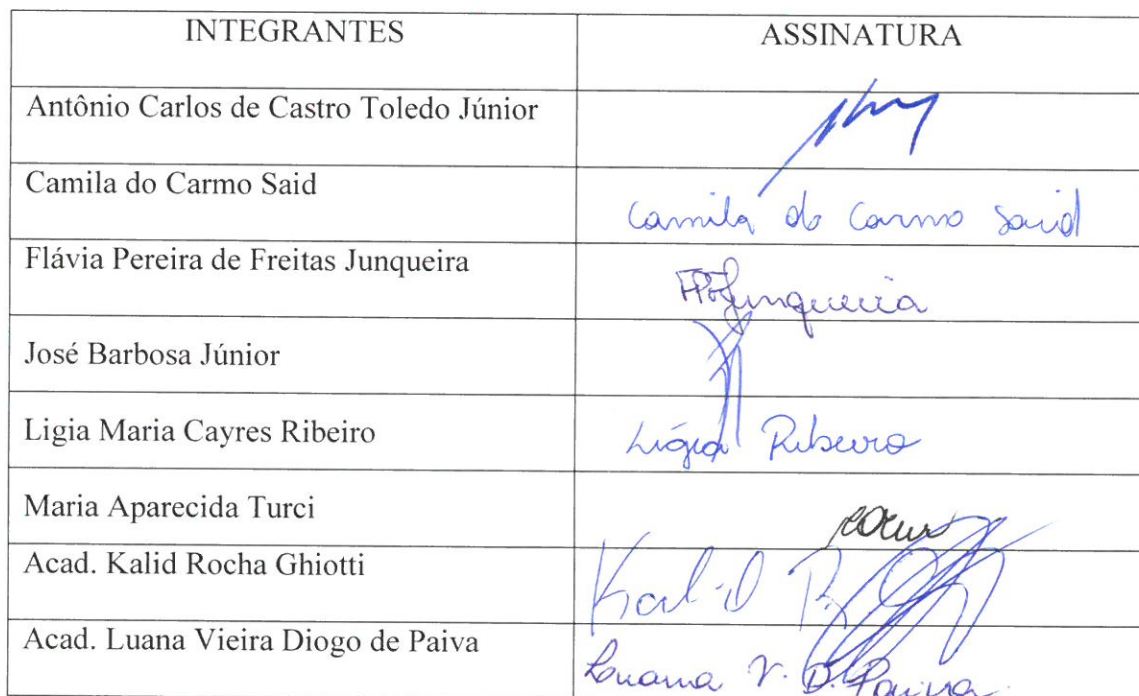 INTEGRANTES ASSINATURA
Antônio Carlos de Castro Toledo Júnior
Camila do Carmo Said Camila do Carmo Said
Flávia Pereira de Freitas Junqueira FPFJunqueira
José Barbosa Júnior
Ligia Maria Cayres Ribeiro Lígia Ribeiro
Maria Aparecida Turci
Acad. Kalid Rocha Ghiotti Kalid R.
Acad. Luana Vieira Diogo de Paiva Luana V. D. Paiva